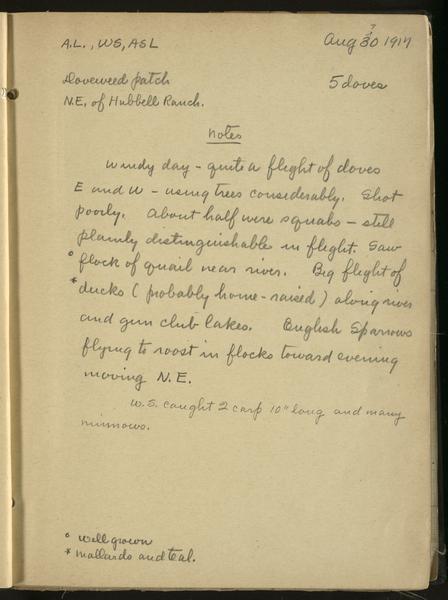 A.L., WS, ASL
Aug 30 1917
?
Doveweed patch
5 doves
N.E. of Hubbell Ranch.
notes
Windy day - quite a flight of doves
E and W - using trees considerably. Shot
poorly. About half were squabs - still
plainly distinguishable in flight. Saw
° flock of quail near river. Big flight of
* ducks (probably home-raised) along river
and gun club lakes. English Sparrows
flying to roost in flocks toward evening
moving N.E.
W.S. caught 2 carp 10" long and many
minnows.
° well grown
* mallards and teal.